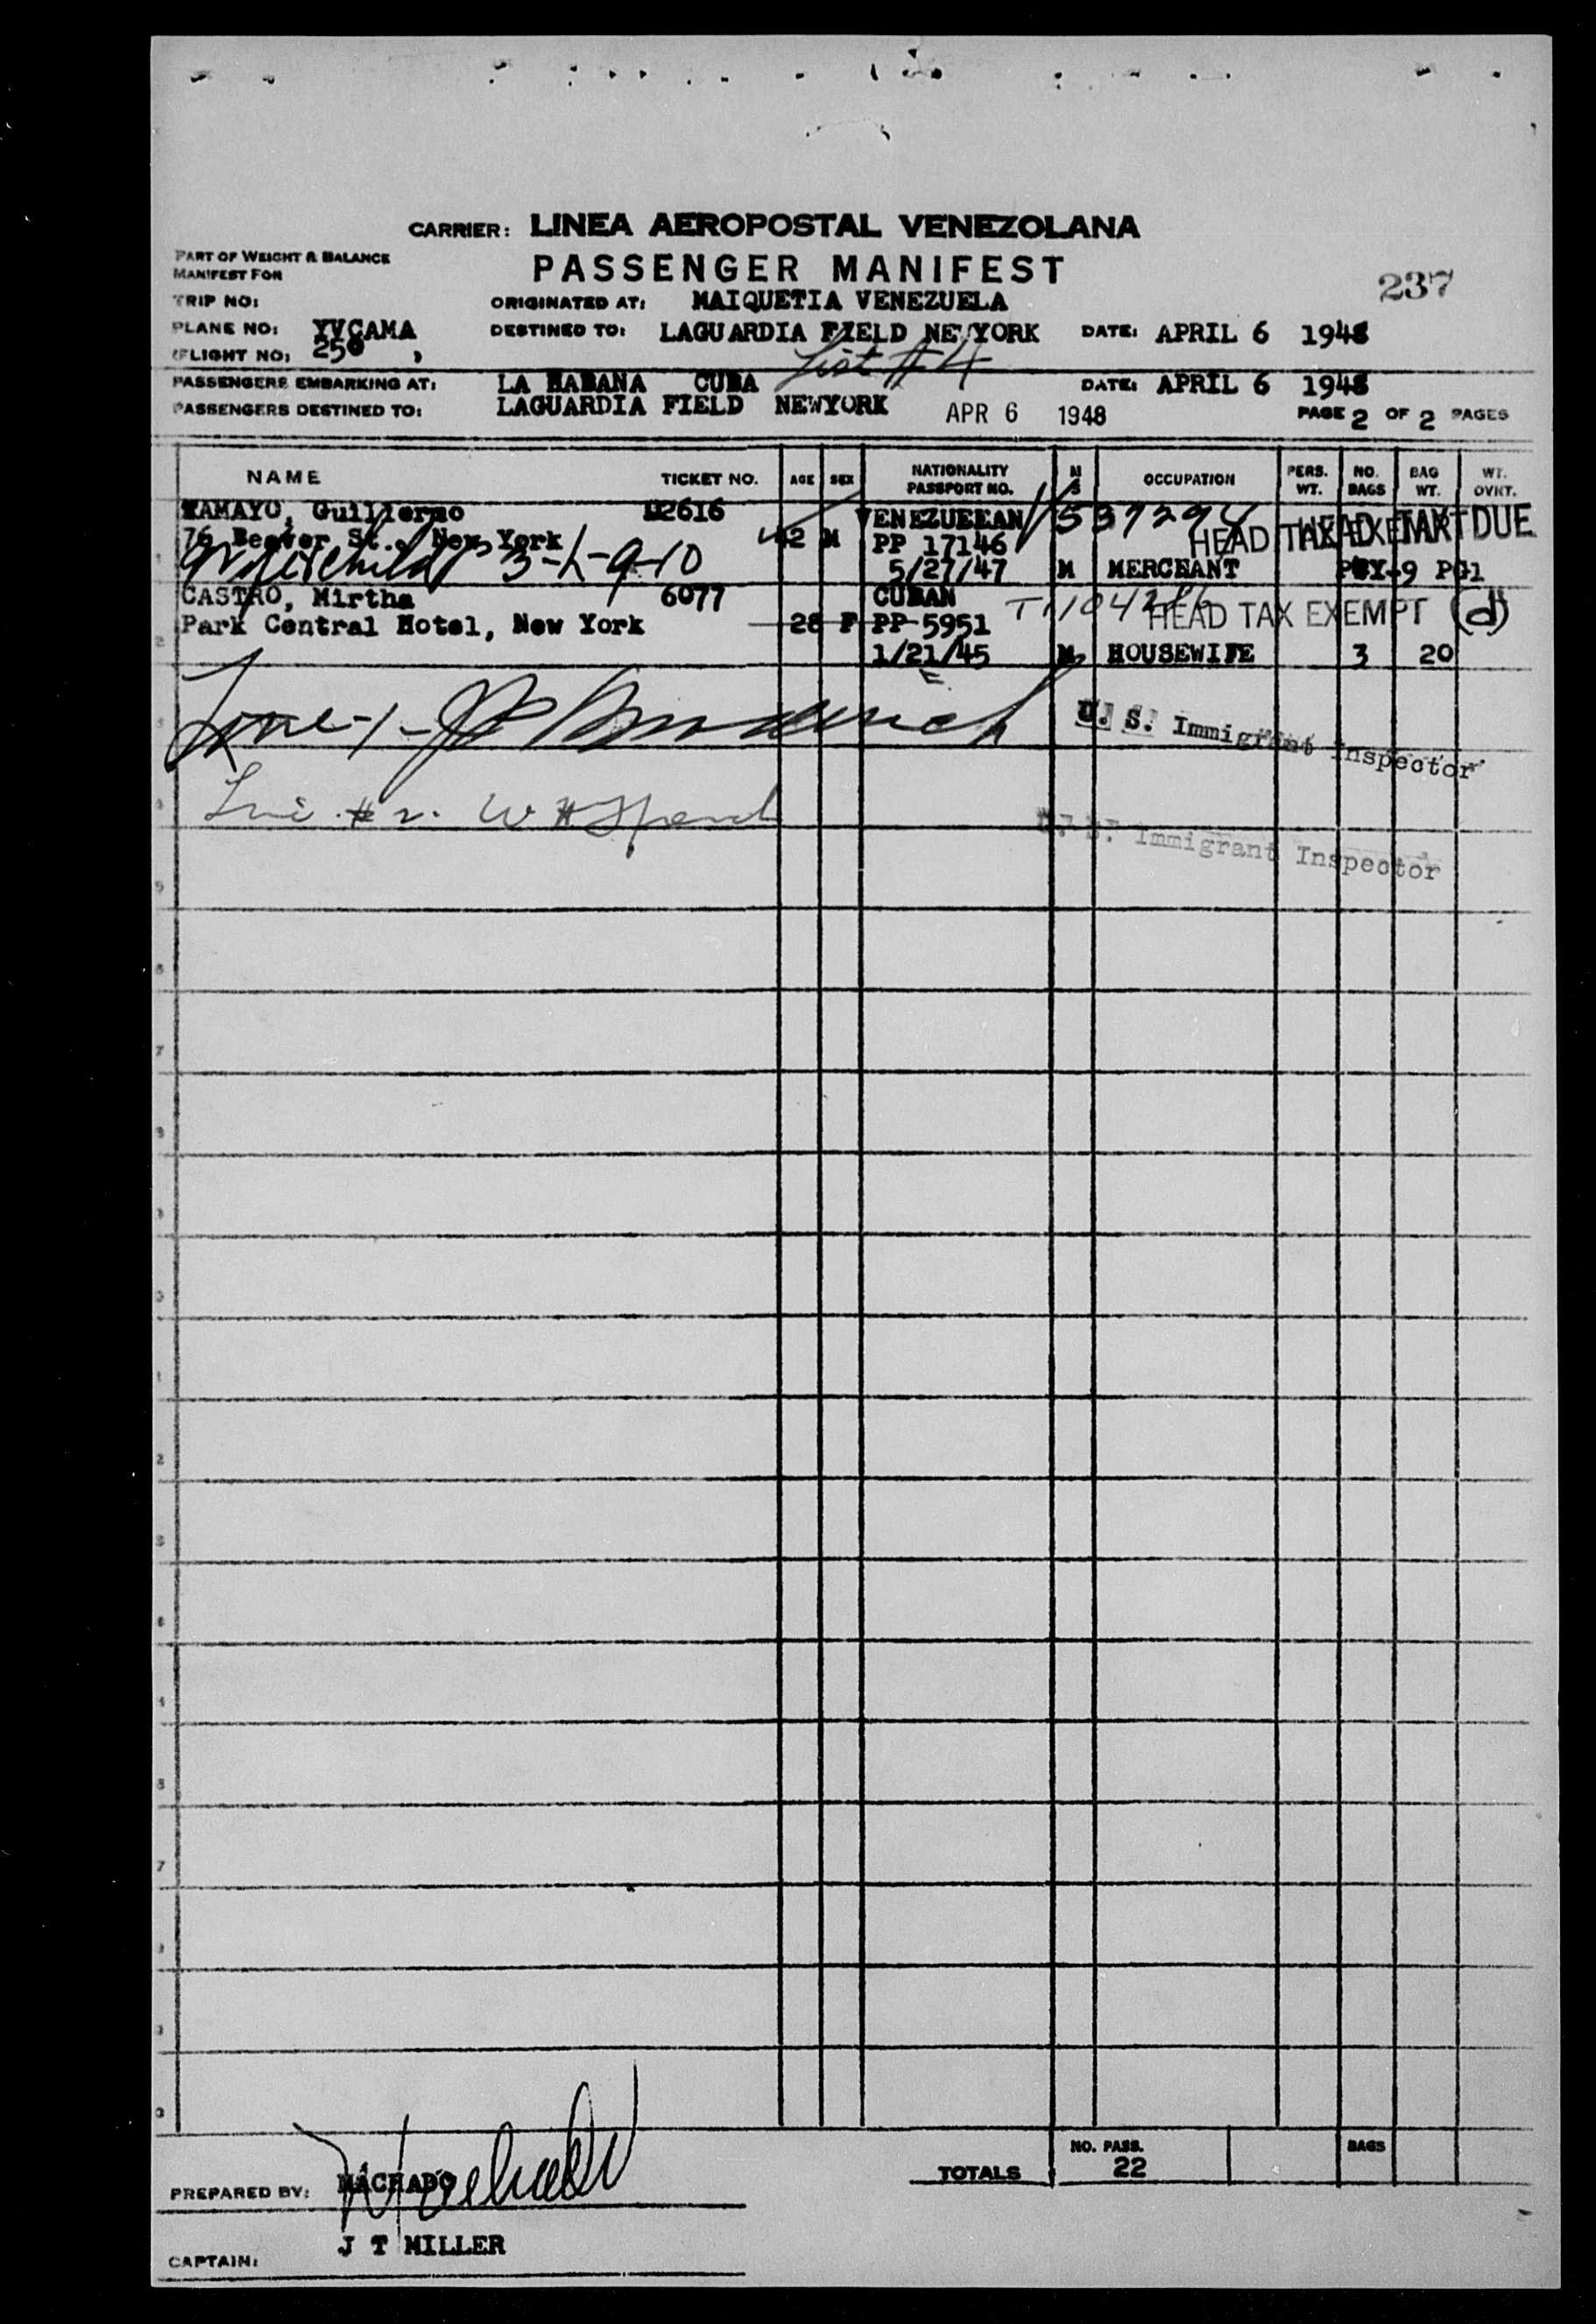 CARRIER: LINEA AEROPOSTAL VENEZOLANA
PART OF WEIGHT & BALANCE
MANIFEST FOR
PASSENGER MANIFEST
237
TRIP NO:
ORIGINATED AT: MAIQUETIA VENEZUELA
PLANE NO: YVCAMA
DESTINED TO: LAGUARDIA FIELD NEWYORK DATE: APRIL 6 1948
FLIGHT NO: 250
List #4
PASSENGERS EMBARKING AT: LA HABANA CUBA DATE: APRIL 6 1948
PASSENGERS DESTINED TO: LAGUARDIA FIELD NEWYORK APR 6 1948 PAGE 2 OF 2 PAGES
NAME TICKET NO. AGE SEX NATIONALITY PASSPORT NO. M S OCCUPATION PERS. WT. NO. BAGS BAG WT. WT. OVHT.
TAMAYO, Guillermo 12616 VENEZUELAN
76 Beaver St., New York 42 M PP 17146 HEAD TAX EXEMPT DUE
3-4-9-10 5/27/47 M MERCHANT
CASTRO, Mirtha 6077 CUBAN HEAD TAX EXEMPT (d)
Park Central Hotel, New York 28 F PP 5951
1/21/45 M HOUSEWIFE 3 20
Line-1-
U. S. Immigrant Inspector
Line #2. W H
U. S. Immigrant Inspector
TOTALS NO. PASS. 22 BAGS
PREPARED BY: MACHADO
CAPTAIN: J T MILLER